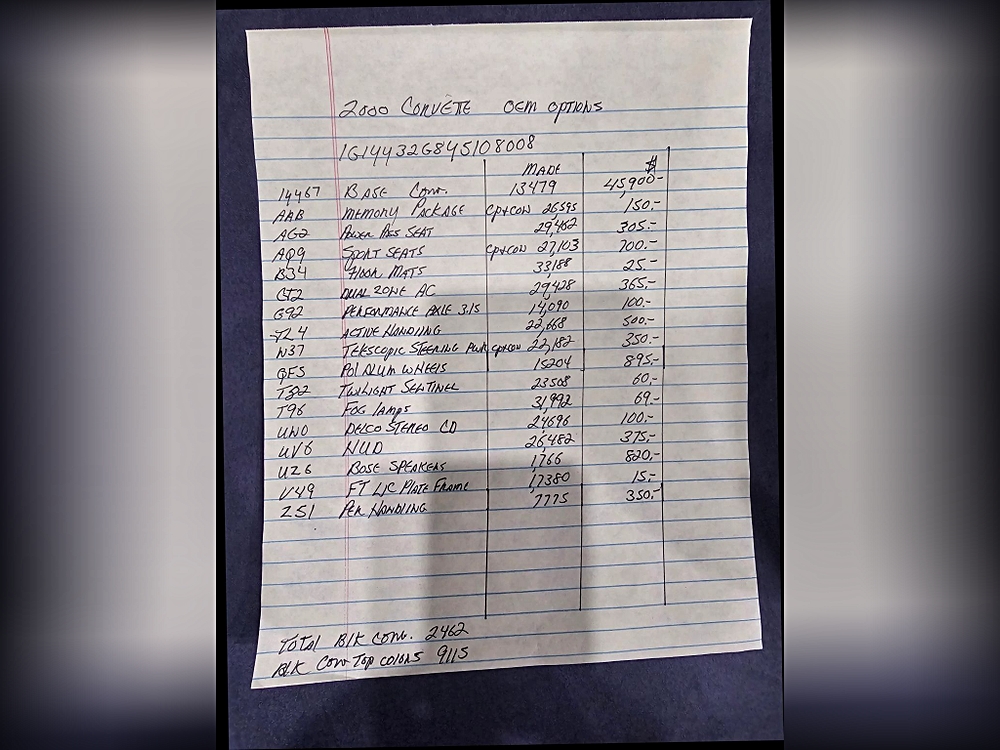 2000 CORVETE OEM OPTIONS
1G1YY32G8Y5108008
MADE $
1YY67 BASE Conv. 13479 45,900-
AAB MEMORY PACKAGE CP+CON 26,595 150.-
AG2 POWER PAS SEAT 29,462 305.-
AQ9 SPORT SEATS CP+CON 27,103 700.-
B34 FLOOR MATS 33,188 25.-
CJ2 DUAL ZONE AC 29,428 365.-
G92 PERFORMANCE AXLE 3.15 14,090 100.-
JL4 ACTIVE HANDLING 22,668 500.-
N37 TELESCOPIC STEERING PWR CP+CON 22,182 350.-
QF5 POL ALUM WHEELS 15204 895.-
T82 TWILIGHT SENTINEL 23508 60.-
T96 FOG lamps 31,992 69.-
UN0 DELCO STEREO CD 24696 100.-
UV6 HUD 26,482 375.-
UZ6 BOSE SPEAKERS 1766 820.-
V49 FT LIC PLATE FRAME 17380 15.-
Z51 PER HANDLING 7775 350.-
TOTAL BLK CONV. 2462
BLK CONV TOP COLORS 9115